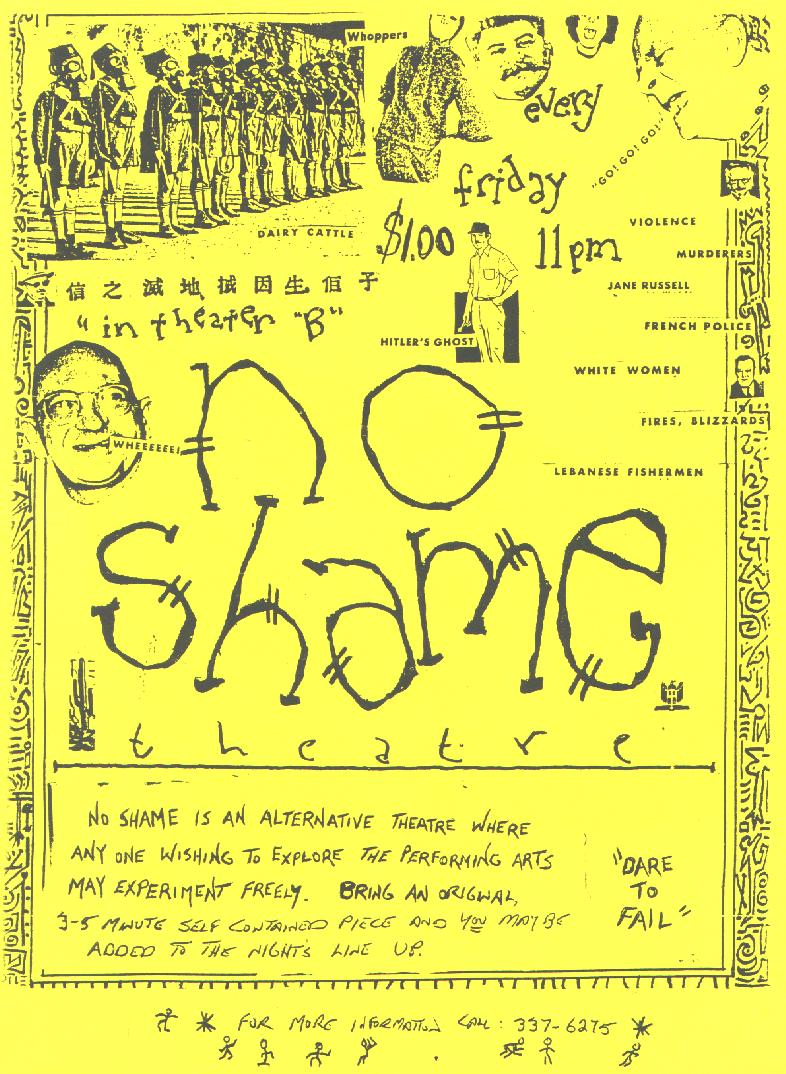 Whoppers
every
"GO! GO! GO!"
friday
DAIRY CATTLE
$1.00
11pm
VIOLENCE
MURDERERS
JANE RUSSELL
信 之 滅 地 拭 因 生 佰 子
"in theater "B"
HITLER'S GHOST
FRENCH POLICE
WHITE WOMEN
WHEEEEEE!
FIRES, BLIZZARDS
LEBANESE FISHERMEN
no
shame
theatre
NO SHAME IS AN ALTERNATIVE THEATRE WHERE
ANY ONE WISHING TO EXPLORE THE PERFORMING ARTS
MAY EXPERIMENT FREELY. BRING AN ORIGINAL,
3-5 MINUTE SELF CONTAINED PIECE AND YOU MAY BE
ADDED TO THE NIGHT'S LINE UP.
"DARE
TO
FAIL"
FOR MORE INFORMATION CALL: 337-6275